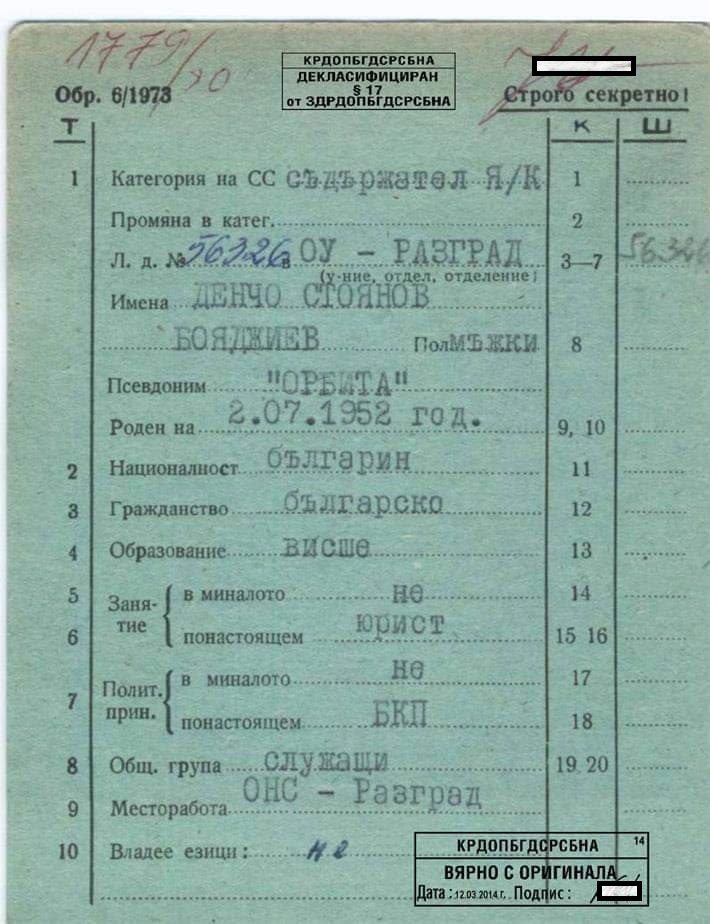 1779/90
КРДОПБГДСРСБНА
ДЕКЛАСИФИЦИРАН
§ 17
от ЗДРДОПБГДСРСБНА
Обр. 6/1973
Строго секретно!
Т К Ш
1 Категория на СС съдържател Я/К 1
Промяна в катег. 2
Л. д. № 56326 в ОУ - РАЗГРАД 3—7 56326
(у-ние, отдел, отделение)
Имена ДЕНЧО СТОЯНОВ
БОЯДЖИЕВ Пол мъжки 8
Псевдоним "ОРБИТА"
Роден на 2.07.1952 год. 9, 10
2 Националност българин 11
3 Гражданство българско 12
4 Образование висше 13
5 Заня- в миналото не 14
6 тие понастоящем юрист 15 16
7 Полит. в миналото не 17
прин. понастоящем БКП 18
8 Общ. група служащи 19 20
9 Месторабота ОНС - Разград
10 Владее езици: не
КРДОПБГДСРСБНА 14
ВЯРНО С ОРИГИНАЛА
Дата: 12.03.2014.г. Подпис: